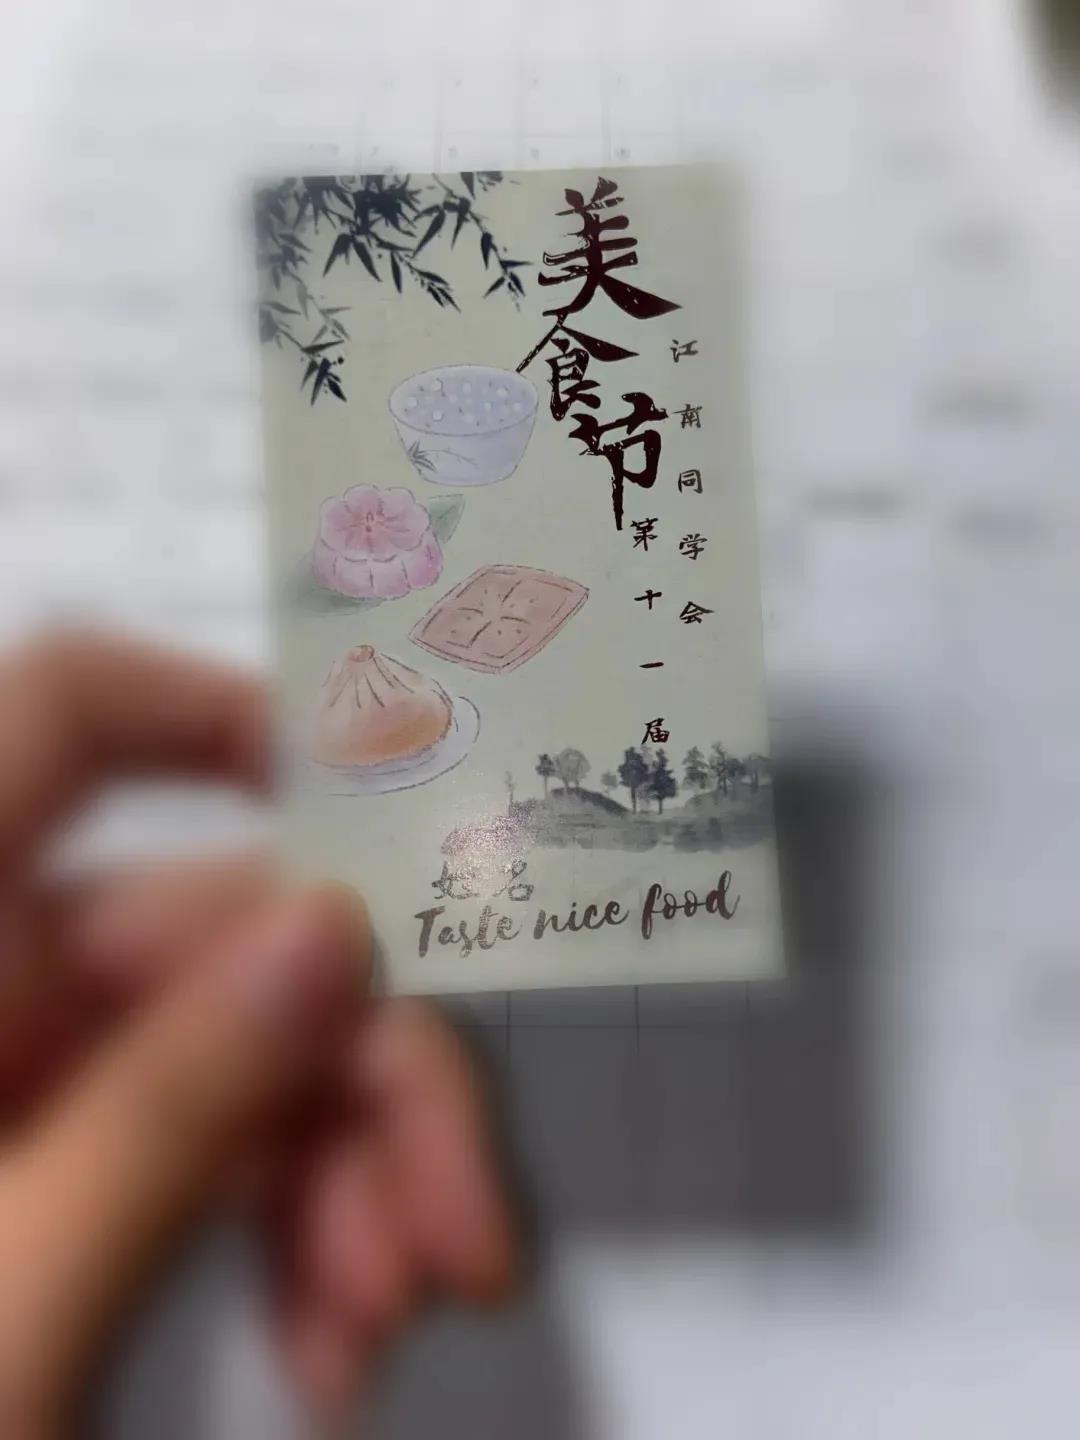 美食节
江南同学会
第十一届
姓名
Taste nice food